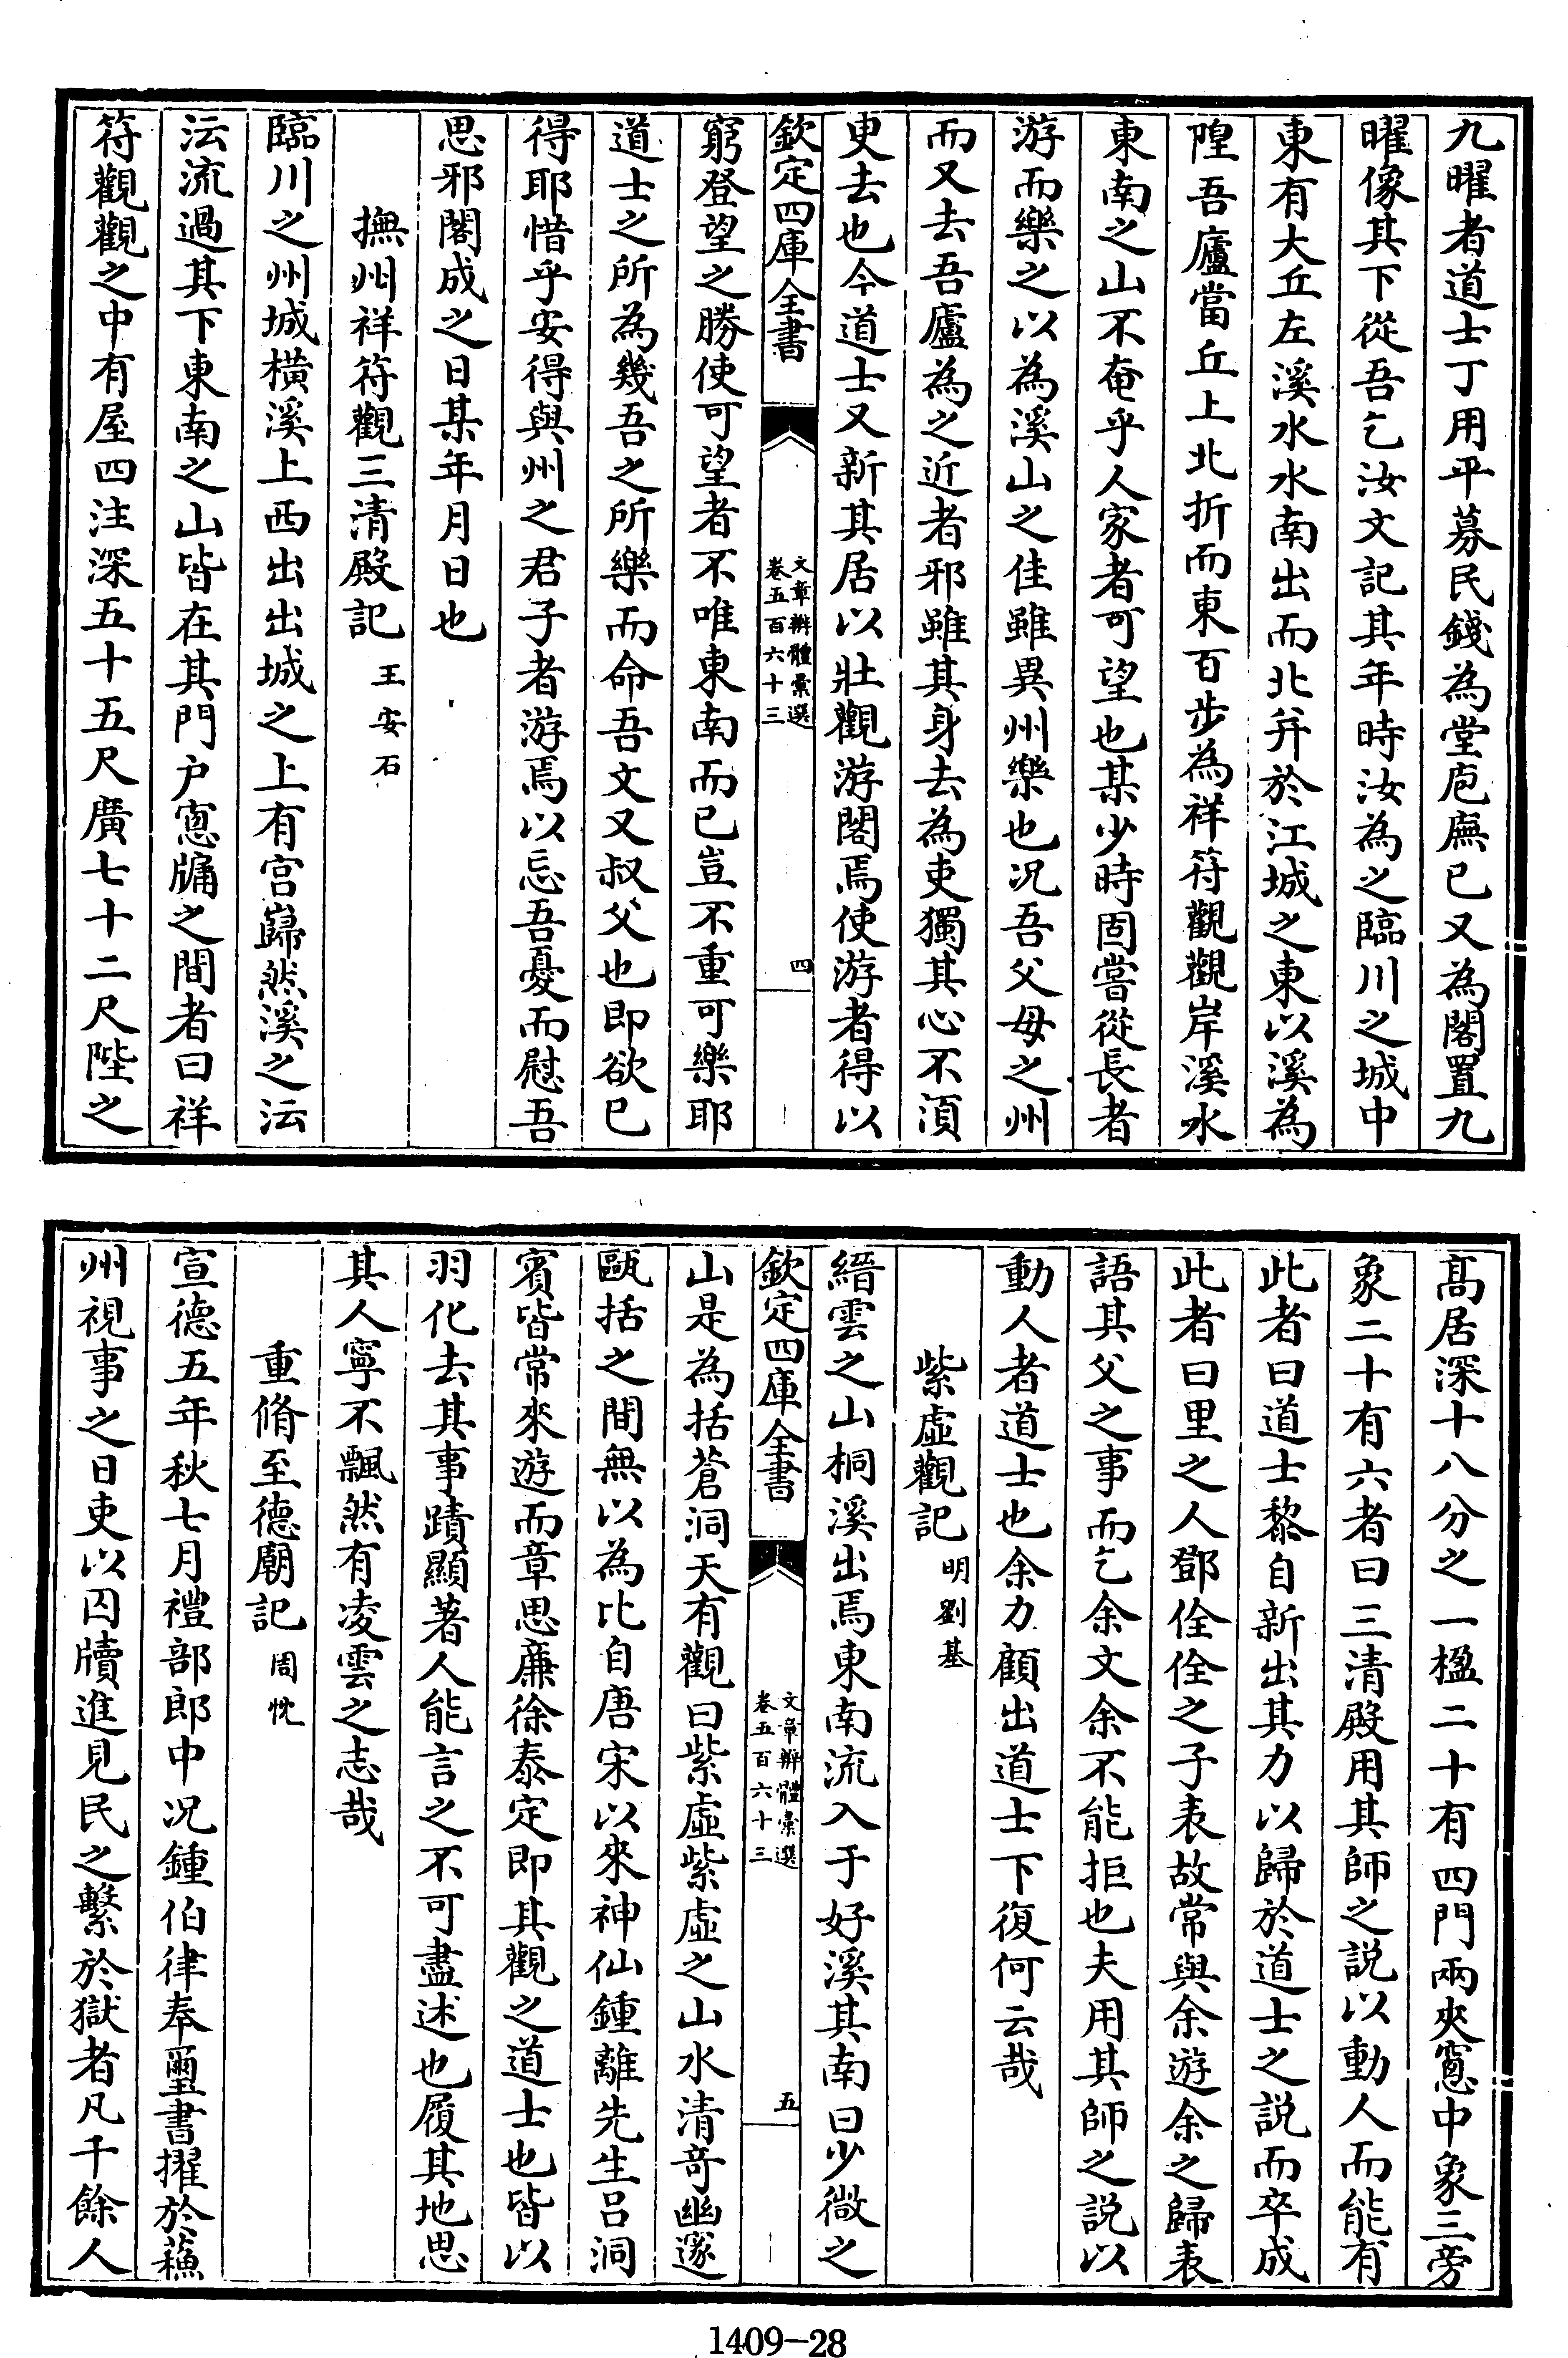 九曜者道士丁用平募民錢為堂庖廡已又為閣置九
曜像其下從吾乞汝文記其年時汝為之臨川之城中
東有大丘左溪水水南出而北并於江城之東以溪為
隍吾廬當丘上北折而東百步為祥符觀觀岸溪水
東南之山不奄乎人家者可望也某少時固嘗從長者
游而樂之以為溪山之佳雖異州樂也况吾父母之州
而又去吾廬為之近者邪雖其身去為吏獨其心不須
臾去也今道士又新其居以壯觀游閣焉使游者得以
欽定四庫全書
文章辨體彙選
卷五百六十三
四
窮登望之勝使可望者不唯東南而已豈不重可樂耶
道士之所為幾吾之所樂而命吾文又叔父也即欲已
得耶惜乎安得與州之君子者游焉以忘吾憂而慰吾
思邪閣成之日某年月日也
撫州祥符觀三清殿記 王安石
臨川之州城橫溪上西出出城之上有宮巋然溪之沄
沄流過其下東南之山皆在其門户窻牖之間者曰祥
符觀觀之中有屋四注深五十五尺廣七十二尺陛之
髙居深十八分之一楹二十有四門兩夾窻中象三旁
象二十有六者曰三清殿用其師之説以動人而能有
此者曰道士黎自新出其力以歸於道士之説而卒成
此者曰里之人鄧佺佺之子表故常與余遊余之歸表
語其父之事而乞余文余不能拒也夫用其師之説以
動人者道士也余力顧出道士下復何云哉
紫虛觀記 明劉基
縉雲之山桐溪出焉東南流入于好溪其南曰少微之
欽定四庫全書
文章辨體彙選
卷五百六十三
五
山是為括蒼洞天有觀曰紫虛紫虛之山水清竒幽邃
甌括之間無以為比自唐宋以來神仙鍾離先生吕洞
賓皆常來遊而章思廉徐泰定即其觀之道士也皆以
羽化去其事蹟顯著人能言之不可盡述也履其地思
其人寧不飄然有凌雲之志哉
重脩至德廟記 周忱
宣德五年秋七月禮部郎中况鍾伯律奉璽書擢於蘇
州視事之日吏以囚牘進見民之繫於獄者凡千餘人
1409-28